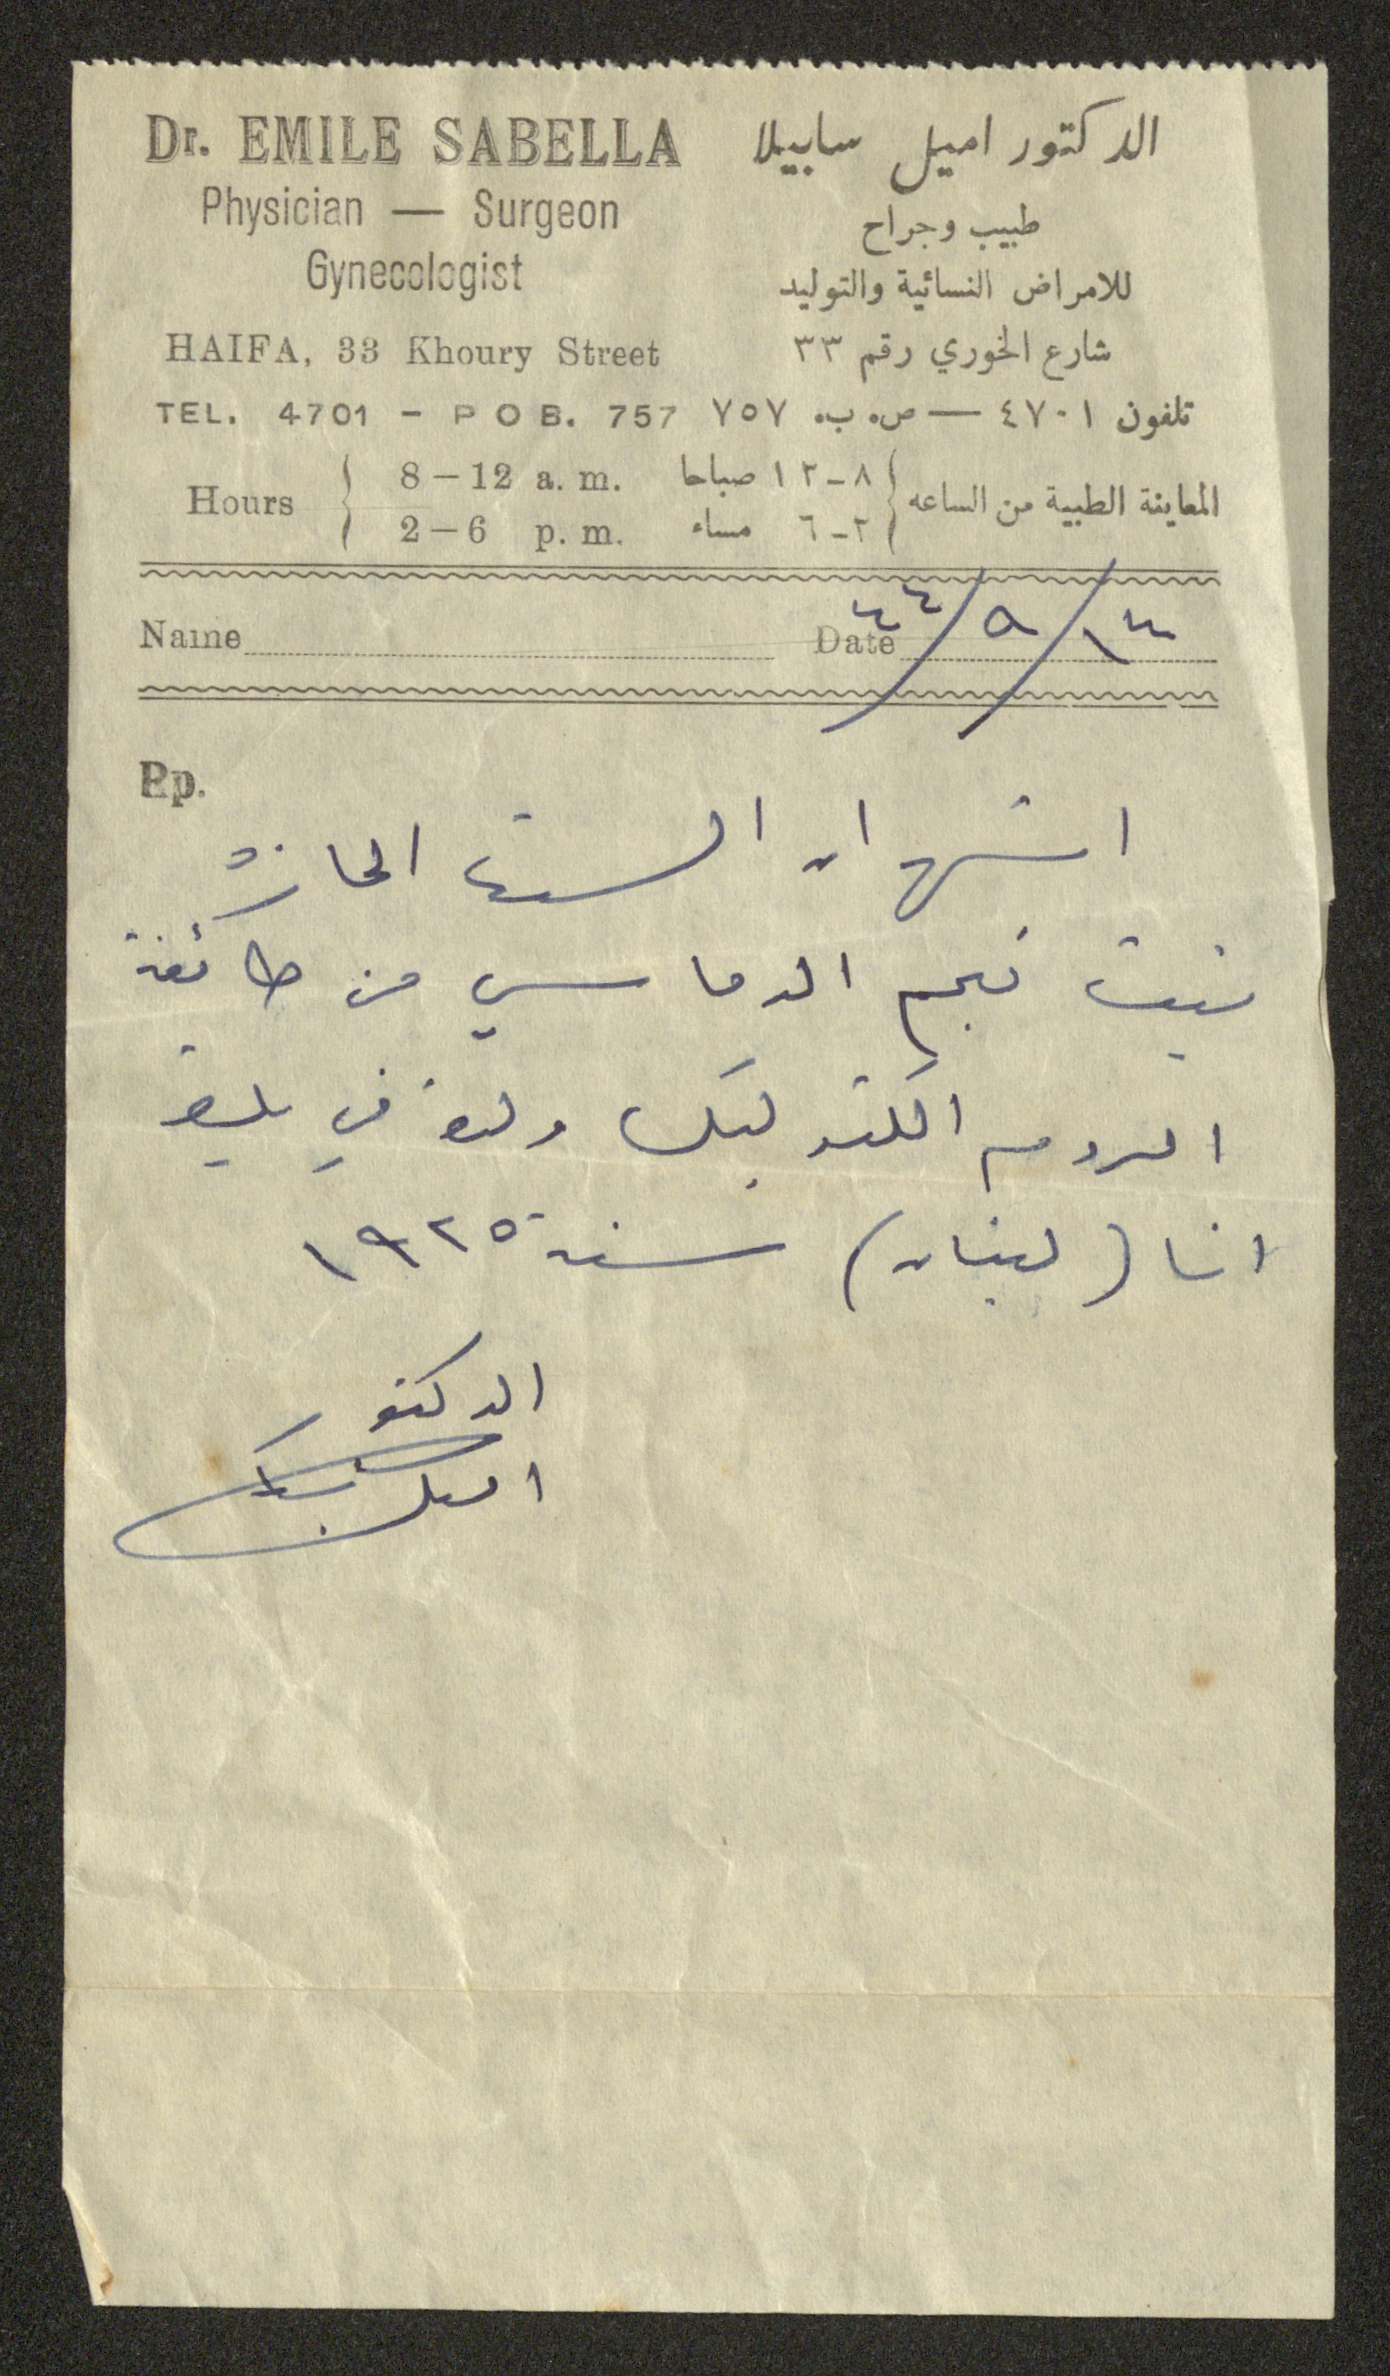 Dr. EMILE SABELLA
Physician — Surgeon
Gynecologist
HAIFA, 33 Khoury Street
TEL. 4701 - P O B. 757
Hours
8 – 12 a. m.
2 – 6 p. m.
الدكتور اميل سابيلا
طبيب وجراح
للامراض النسائية والتوليد
شارع الخوري رقم ٣٣
تلفون ٤٧٠١ — ص. ب. ٧٥٧
المعاينة الطبية من الساعه
٨ - ١٢ صباحا
٢ - ٦ مساء
Name
Date
Rp.
اشهد ان الست
بنت نجم الدماسي من طائفة
الروم الكتوليك ولدت في
(لبنان) سنة ١٩٢٥
الدكتور
اميل سابيلا